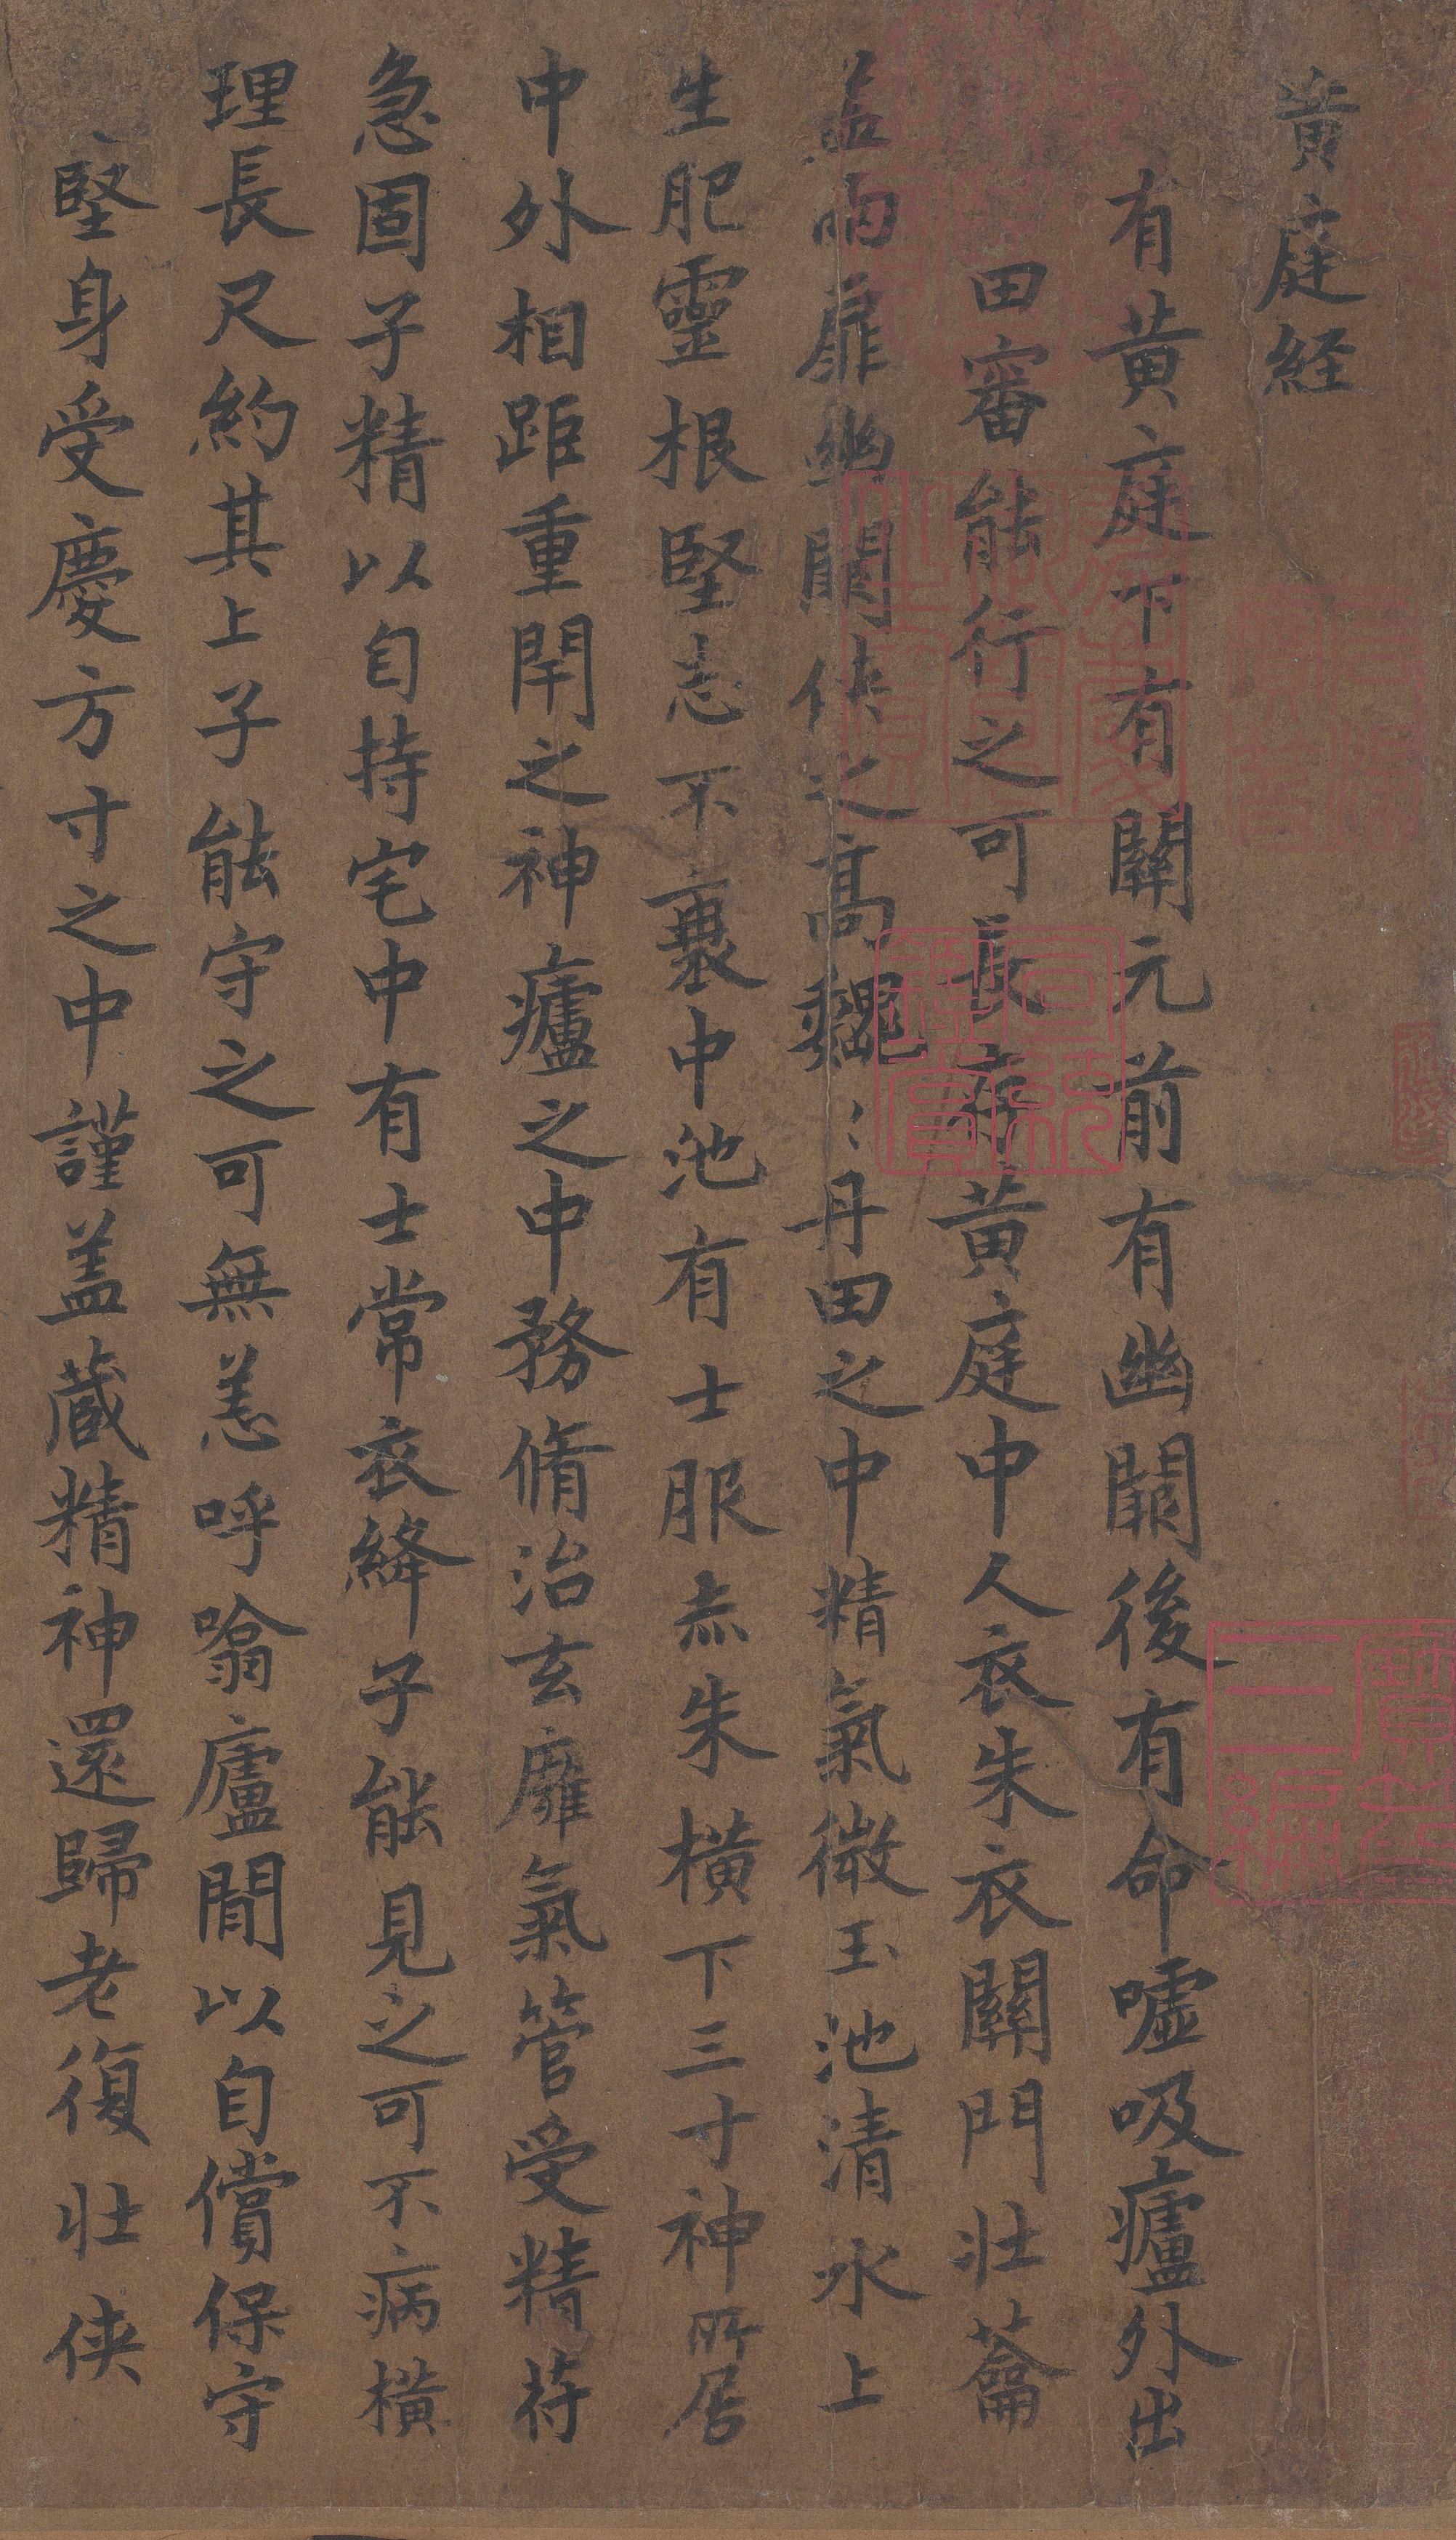 黄庭経
有黄庭下有關元前有幽闕後有命噓吸廬外出
田審能行之可長存黄庭中人衣朱衣關門壮蘥
盖兩扉幽闕侠之髙巍〻丹田之中精氣微玉池清水上
生肥靈根堅志不衰中池有士服赤朱橫下三寸神所居
中外相距重閇之神廬之中務脩治玄廱氣管受精苻
急固子精以自持宅中有士常衣絳子能見之可不病橫
理長尺約其上子能守之可無恙呼噏廬間以自償保守
堅身受慶方寸之中謹盖蔵精神還歸老復壮侠